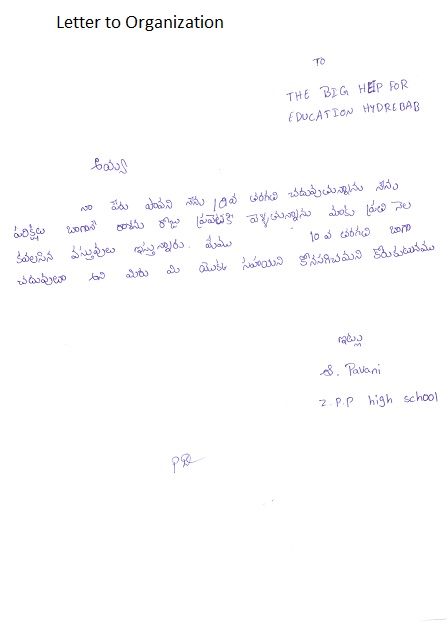 Letter to Organization
TO
THE BIG HELP FOR
EDUCATION HYDREBAB
అయ్య
నా పేరు పావని నేను 10వ తరగతి చదువుతున్నాను నేను
పరిక్షలు బాగానే రోజు ప్రైవేటుకి వెళ్ళుతున్నాను మాకు ప్రతి నెల
కవలసిన వస్తువులు ఇస్తున్నారు. మేము 10 వ తరగతి బాగా
చదువులా అని మిరు మి యొక్క సహాయని కోనసగిచమని కోరుకుటునము
ఇట్లు
S. Pavani
Z.P.P high school